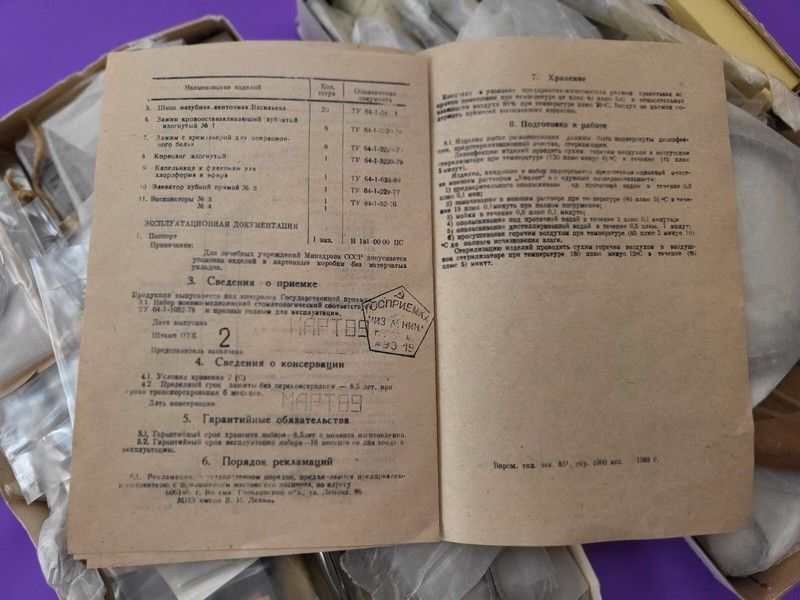 Наименование изделий
Кол. штук
Обозначение документа
5. Шина назубная ленточная Васильева 20 ТУ 64-1-
6. Зажим кровоостанавливающий зубчатый
изогнутый № 1 8 ТУ 64-1-
7. Зажим с кремальерой для операцион-
ного белья 8 ТУ 64-1-
8 Корнцанг изогнутый 1 ТУ 64-1-3220-79
9 Капельница к флаконам для
хлороформа и эфира 1 ТУ 64-1-
10 Элеватор зубной прямой № 3 1 ТУ 64-1-
11. Экскаваторы № 3 1 ТУ 64-1-
№ 4 1
ЭКСПЛУАТАЦИОННАЯ ДОКУМЕНТАЦИЯ
1. Паспорт 1 экз. Н 181 00 00 ПС
Примечание:
Для лечебных учреждений Минздрава СССР допускается
упаковка изделий в картонные коробки без матерчатых
укладок.
3. Сведения о приемке
Продукция выпускается под контролем Государственной приемки
3.1. Набор военно-медицинский стоматологический соответствует
ТУ 64-1-1082-78 и признан годным для эксплуатации.
Дата выпуска МАРТ 89
Штамп ОТК 2
Представитель заказчика
ГОСПРИЕМКА
МИЗ ЛЕНИНА
4. Сведения о консервации
4.1. Условия хранения 2 (С)
4.2. Предельный срок защиты без переконсервации — 8,5 лет, при
сроке транспортирования 6 месяцев.
Дата консервации МАРТ 89
5. Гарантийные обязательства
5.1. Гарантийный срок хранения набора—8,5лет с момента изготовления.
5.2. Гарантийный срок эксплуатации набора—18 месяцев со дня ввода в
эксплуатацию.
6. Порядок рекламаций
6.1. Рекламации, в установленном порядке, предъявляются предприятию-
изготовителю с приложением настоящего паспорта, по адресу
Горьковской обл., ул. Ленина,
МИЗ имени В. И. Ленина.
7. Хранение
Комплект в упаковке предприятия-изготовителя должен храниться в
помещении при температуре от плюс 40 до плюс 5°С и относительной
влажности воздуха 80% при температуре плюс 20°С. Воздух не должен со-
держать примесей, вызывающих коррозию.
8. Подготовка к работе
8.1. Изделия после расконсервации должны быть подвергнуты дезинфек-
ции, предстерилизационной очистке, стерилизации.
Дезинфекцию изделий проводить сухим горячим воздухом в воздушном
стерилизаторе при температуре (120 плюс минус 4)°С в течение (45 плюс
5 минут).
Изделия, входящие в набор подвергают предстерилизационной очист-
ке моющим раствором в следующей последовательности:
1) предварительного ополаскивание под проточной водой в течение 0,5
плюс 0,1 мин;
2) замачивание в моющем растворе при температуре (40 плюс 5) °С в тече-
ние 15 плюс 0,1минуты при полном погружении;
3) мойки в течение 0,5 плюс 0,1минуты;
4) ополаскивание под проточной водой в течение 3 плюс 0,1 минуты;
5) ополаскивание дистиллированной водой в течение 0,5 плюс 1 минут;
6) просушивание горячим воздухом при температуре (85 плюс 2 минус 10)
°С до полного исчезновения влаги.
Стерилизацию изделий проводить сухим горячим воздухом в воздуш-
ном стерилизаторе при температуре 180 плюс минус 12°С в течение (60
плюс 5) минут.
Ворсм. тип. зак. 851, тир. 1000 экз. 1988 г.